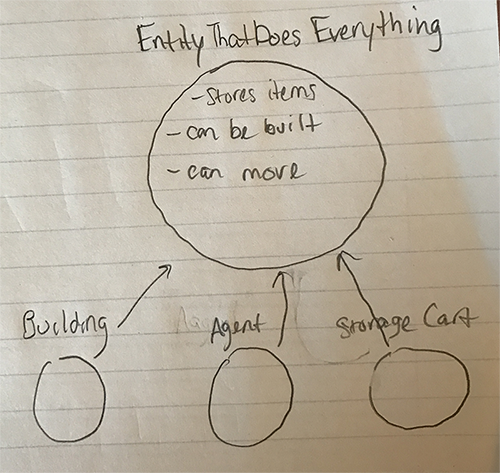 EntityThatDoes Everything
- Stores items
- can be built
- can move
Building
Agent
Storage Cart